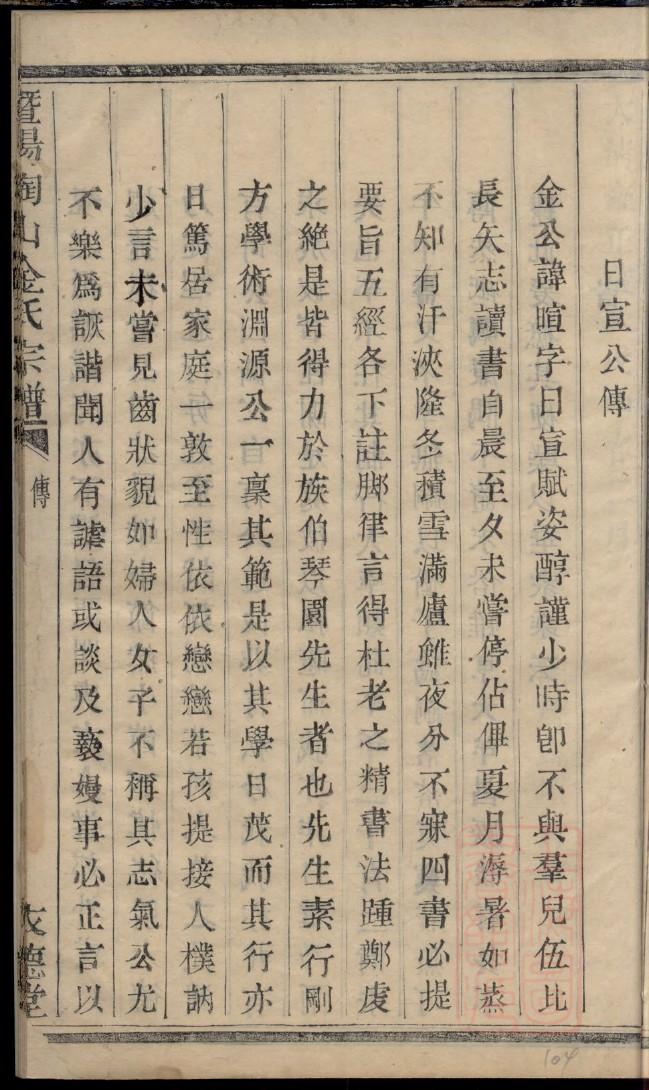 日宣公傳
金公諱暄字日宣賦姿醇謹少時卽不與羣兒伍比
長矢志讀書自晨至夕未嘗停佔俾夏月溽暑如蒸
不知有汗浹隆冬積雪滿廬雖夜分不寐四書必提
要旨五經各下註脚律言得杜老之精書法踵鄭虔
之絶是皆得力於族伯琴園先生者也先生素行剛
方學術淵源公一稟其範是以其學日茂而其行亦
日篤居家庭一敦至性依依戀戀若孩提接人樸訥
少言未嘗見齒狀貌如婦人女子不稱其志氣公尤
不樂爲詼諧聞人有謔語或談及䙝嫚事必正言以
暨陽陶山金氏宗譜
傳
友德堂
104